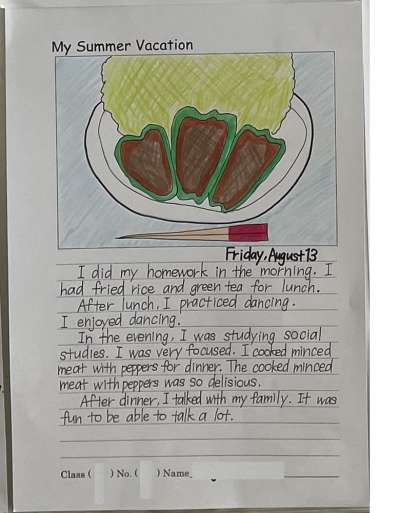 My Summer Vacation
Friday, August 13
I did my homework in the morning. I
had fried rice and green tea for lunch.
After lunch, I practiced dancing.
I enjoyed dancing.
In the evening, I was studying social
studies. I was very focused. I cooked minced
meat with peppers for dinner. The cooked minced
meat with peppers was so delisious.
After dinner, I talked with my family. It was
fun to be able to talk a lot.
Class ( ) No. ( ) Name